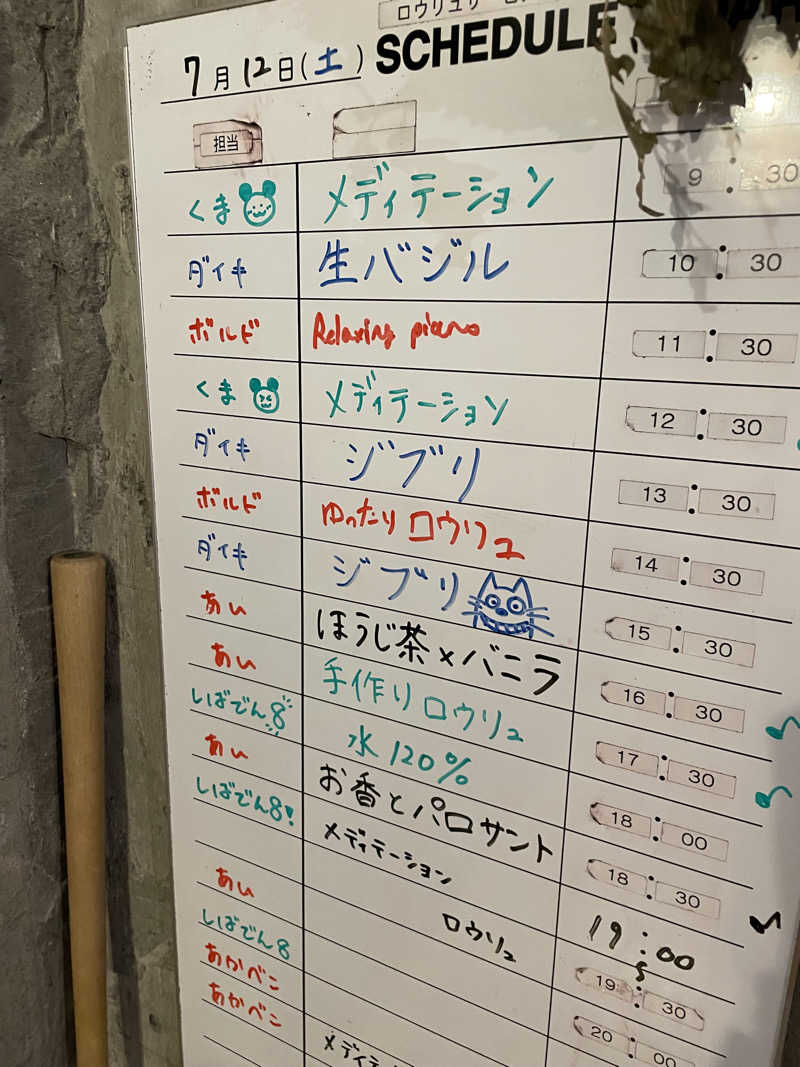 ロウリュサー
SCHEDULE
7月12日(土)
担当
くま メディテーション 9:30
ダイキ 生バジル 10:30
ボルド Relaxing piano 11:30
くま メディテーション 12:30
ダイキ ジブリ 13:30
ボルド ゆったりロウリュ 14:30
ダイキ ジブリ 15:30
あい ほうじ茶×バニラ 16:30
あい 手作りロウリュ 17:30
しばでん8 水120% 18:00
あい お香とパロサント 18:30
しばでん8! メディテーション 19:00
ロウリュ 19:30
あい 20:00
しばでん8
あかべこ
あかべこ メディテ